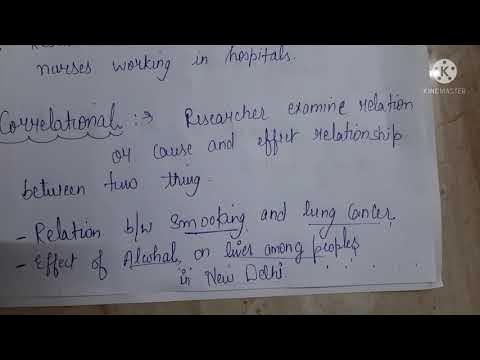 nurses working in hospitals.
KINEMASTER
Correlational :→ Researcher examine relation
or cause and effect relationship
between two thing.
- Relation b/w Smooking and lung Cancer
- Effect of Alcohal on liver among peoples
in New Delhi